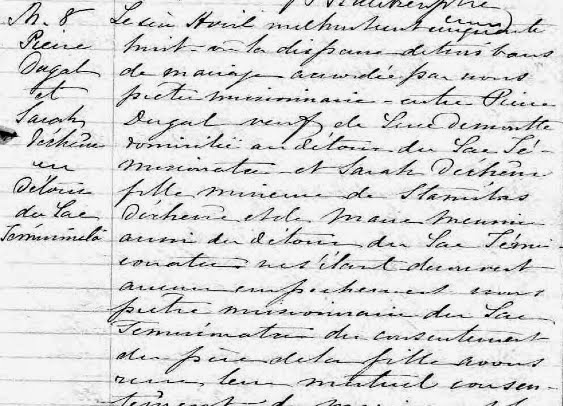 M. 8
Pierre
Dugal
et
Sarah
Déchêne
au
Détour
du Lac
Témiscouata
Le six Avril mil huit cent cinquante
huit - vu la dispense de trois bans
de mariage accordée par nous
prêtre missionnaire - entre Pierre
Dugal veuf de Luce
domicilié au détour du Lac Té-
miscouata - et Sarah Déchêne
fille mineure de Stanislas
Déchêne et de Marie Meunier
aussi du détour du Lac Témis-
couata ne s'étant découvert
aucun empêchement nous
prêtre missionnaire du Lac
Témiscouata du consentement
du père de la fille avons
reçu leur mutuel consen-
tement de mariage